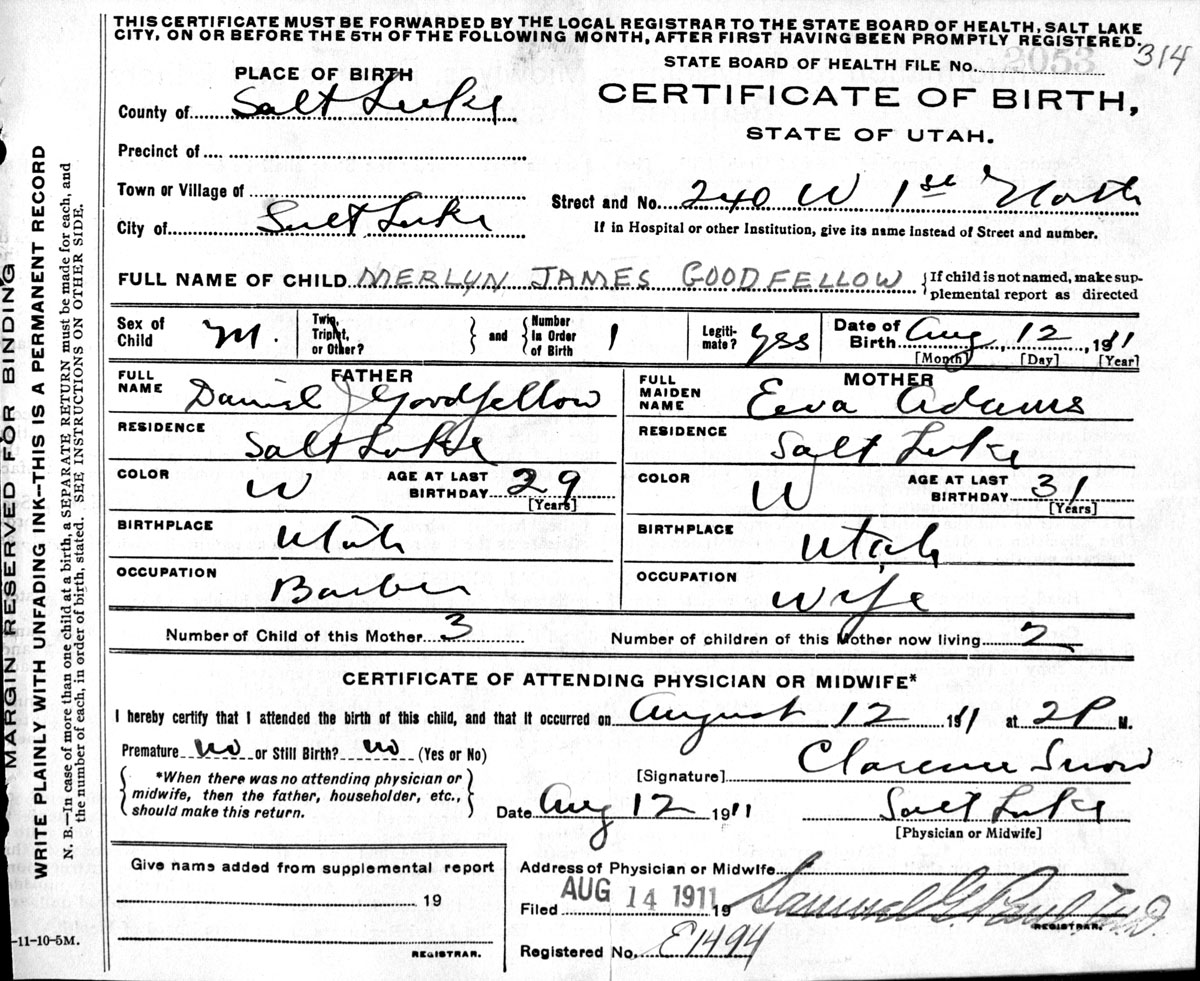 THIS CERTIFICATE MUST BE FORWARDED BY THE LOCAL REGISTRAR TO THE STATE BOARD OF HEALTH, SALT LAKE
CITY, ON OR BEFORE THE 5TH OF THE FOLLOWING MONTH, AFTER FIRST HAVING BEEN PROMPTLY REGISTERED.
314
PLACE OF BIRTH
STATE BOARD OF HEALTH FILE No. 2053
County of Salt Lake
CERTIFICATE OF BIRTH,
STATE OF UTAH.
Precinct of
Town or Village of
Street and No. 240 W 1st North
City of Salt Lake
If in Hospital or other Institution, give its name instead of Street and number.
FULL NAME OF CHILD MERLYN JAMES GOODFELLOW {If child is not named, make sup-
plemental report as directed
Sex of Child M. Twin, Triplet, or Other? } and { Number in Order of Birth 1 Legiti-mate? Yes Date of Birth Aug 12, 1911
[Month] [Day] [Year]
FATHER
FULL NAME Daniel J Goodfellow
RESIDENCE Salt Lake
COLOR W AGE AT LAST BIRTHDAY 29
[Years]
BIRTHPLACE Utah
OCCUPATION Barber
MOTHER
FULL MAIDEN NAME Eva Adams
RESIDENCE Salt Lake
COLOR W AGE AT LAST BIRTHDAY 31
[Years]
BIRTHPLACE Utah
OCCUPATION Wife
Number of Child of this Mother 3 Number of children of this Mother now living 2
CERTIFICATE OF ATTENDING PHYSICIAN OR MIDWIFE*
I hereby certify that I attended the birth of this child, and that it occurred on August 12 1911 at 2P M.
Premature no or Still Birth? no (Yes or No)
{ *When there was no attending physician or
midwife, then the father, householder, etc.,
should make this return. }
[Signature] Clarence Snow
Date Aug 12 1911 Salt Lake
[Physician or Midwife]
Give name added from supplemental report
19
REGISTRAR.
Address of Physician or Midwife
Filed AUG 14 1911 19 Samuel G. Paul, M.D.
REGISTRAR.
Registered No. E1494
MARGIN RESERVED FOR BINDING
WRITE PLAINLY WITH UNFADING INK--THIS IS A PERMANENT RECORD
N. B.—In case of more than one child at a birth, a SEPARATE RETURN must be made for each, and
the number of each, in order of birth, stated. SEE INSTRUCTIONS ON OTHER SIDE.
-11-10-5M.